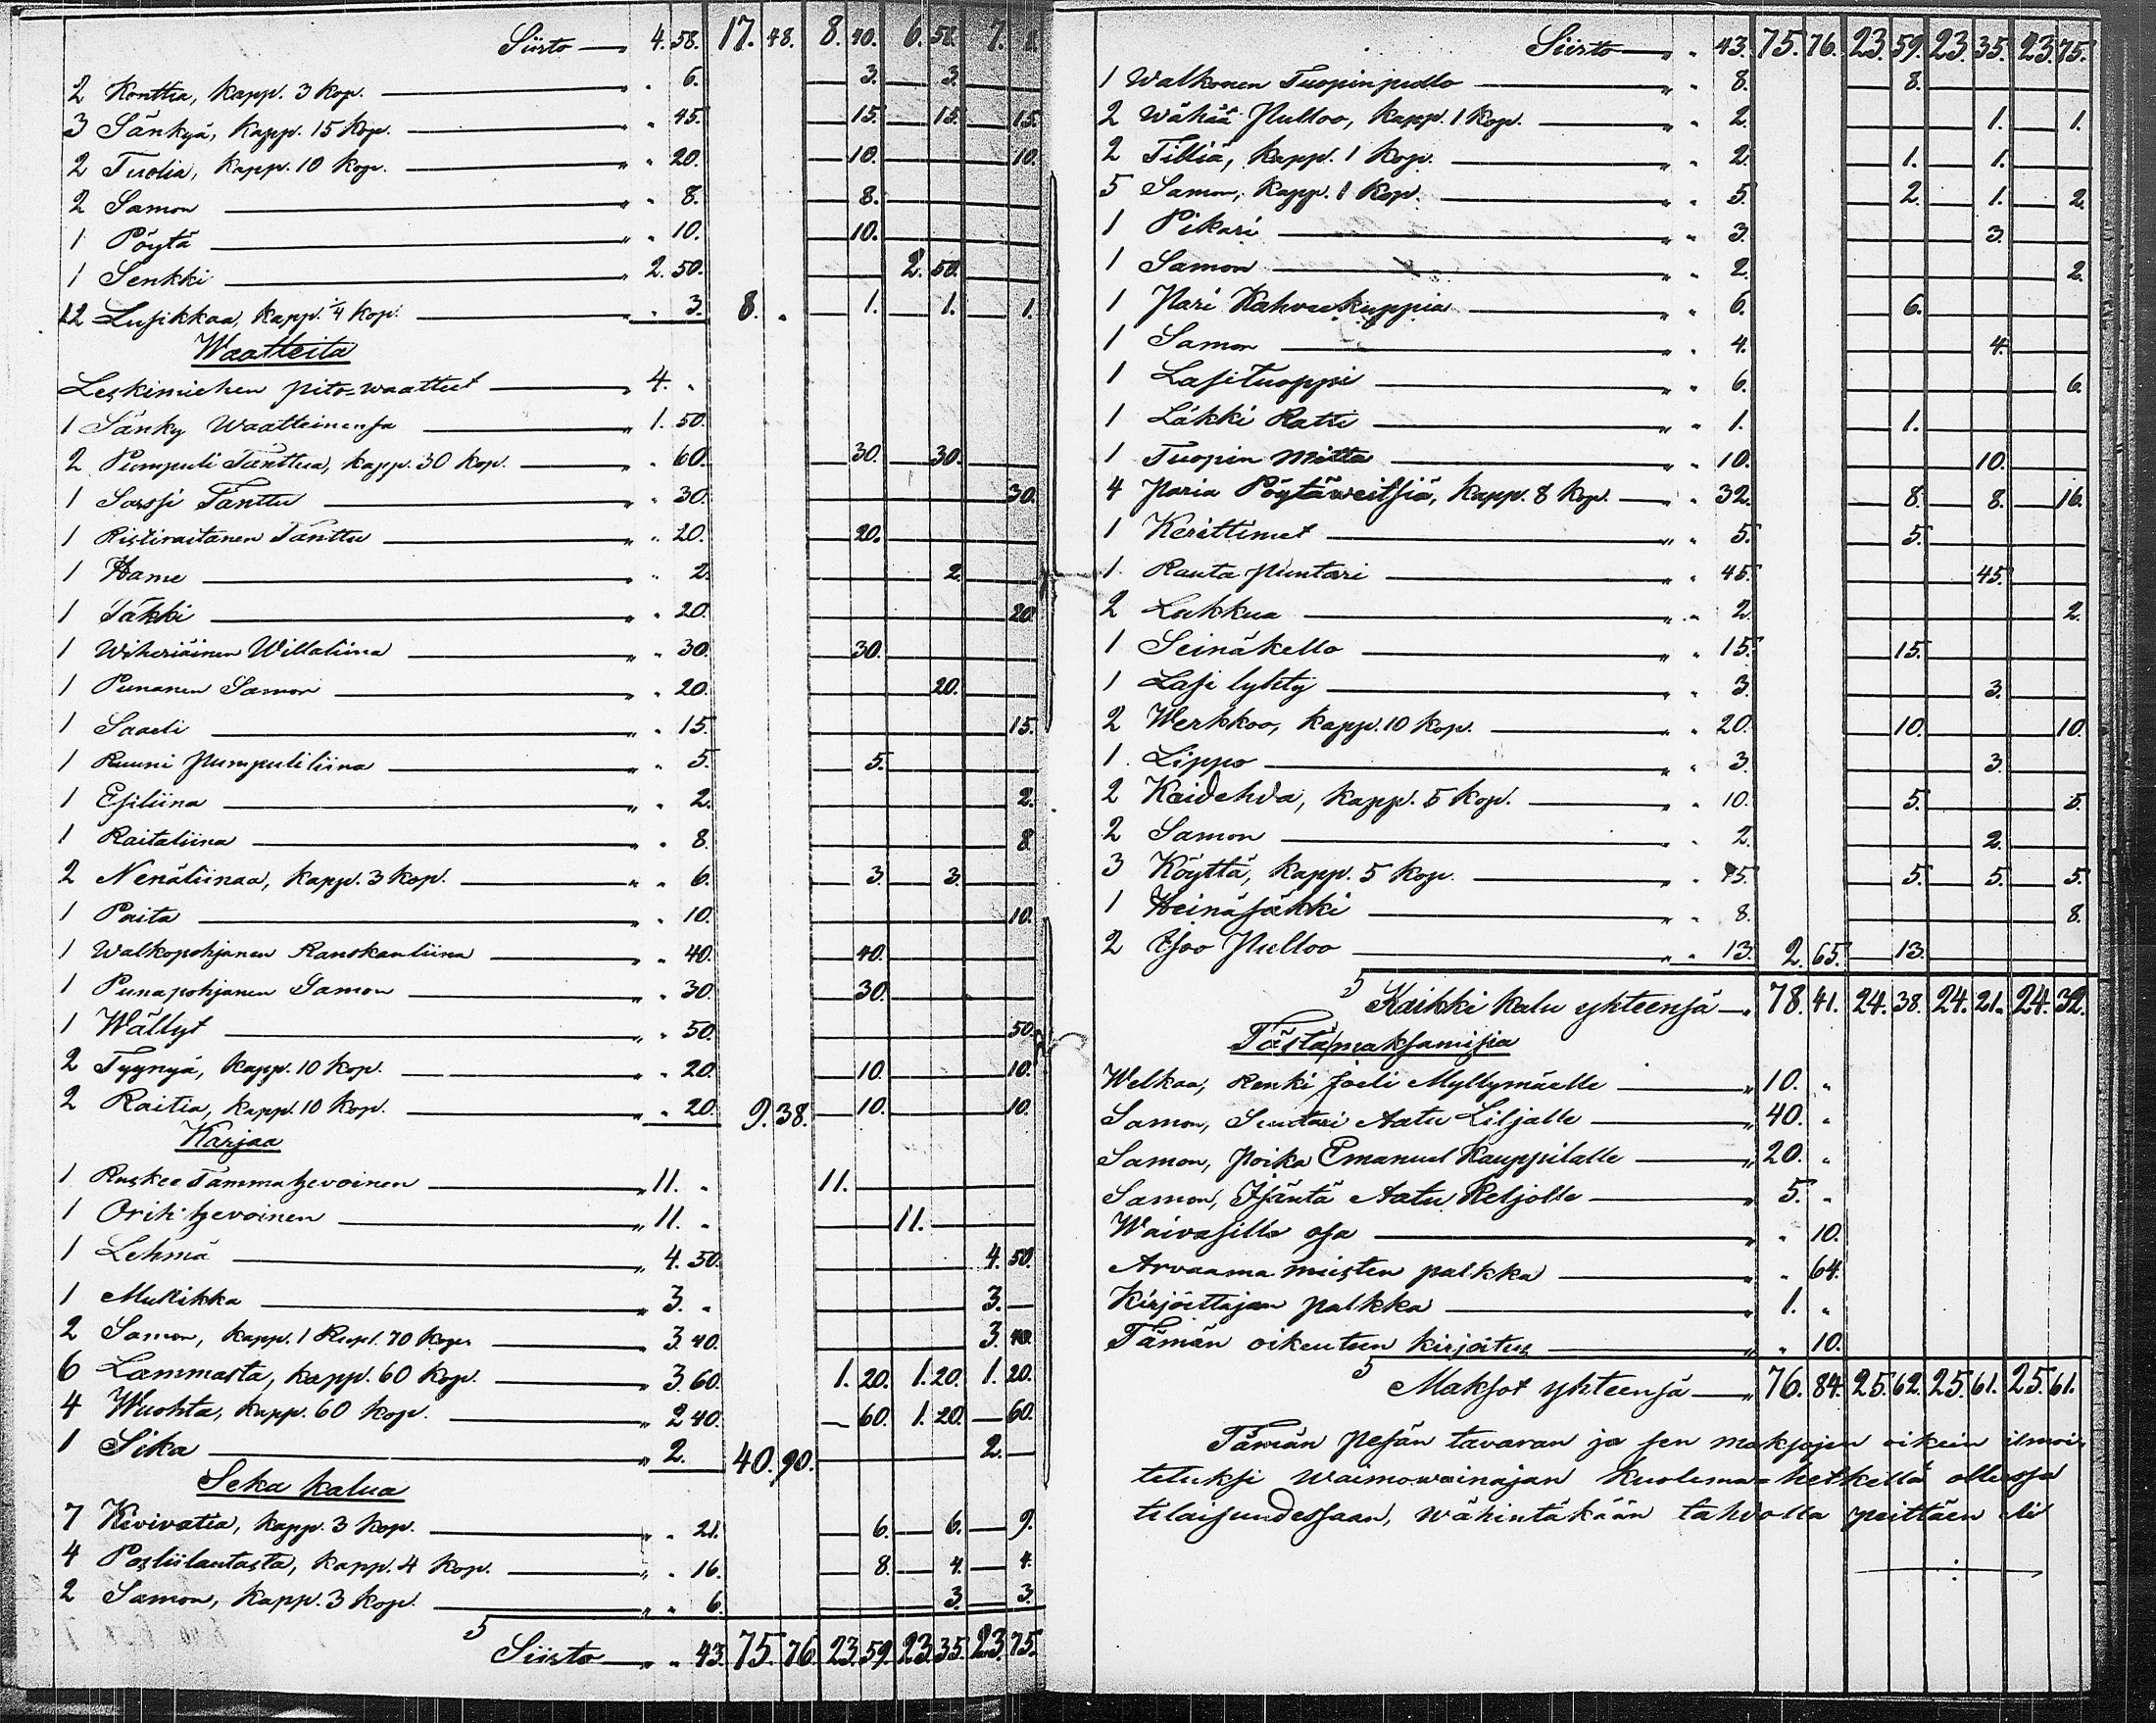 Siirto — 4. 58. 17. 48. 8. 40. 6. 58. 7. 8.
2 Konttia, kapp. 3 kop. — " " 6. 3. 3.
3 Sänkyä, kapp. 15 kop. — " 45. 15. 15. 15.
2 Tuolia, kapp. 10 kop. — " " 20. 10. 10.
2 Samon — " " 8. 8.
1 Pöytä — " " 10. 10.
1 Senkki — 2. 50. 2. 50.
12 Lusikkaa, kapp. 1/4 kop. — " " 3. 8. " 1. 1. 1.
Waatteita
Leskimiehen pito=waatteet — 4. "
1 Sänky Waatteinensa — " 1. 50.
2 Pumpuli Tänttua, kapp. 30 kop. — " 60. 30. 30.
1 Sarssi Tänttu — " 30. 30.
1 Ristiraitanen Tänttu — " " 20. 20.
1 Hame — " " 2. 2.
1 Täkki — " " 20. 20.
1 Wiheriäinen Willaliina — " " 30. 30.
1 Punanen Samon — " " 20. 20.
1 Saali — " " 15. 15.
1 Ruuni pumpuliliina — " " 5. 5.
1 Esiliina — " " 2. 2.
1 Raitaliina — " " 8. 8.
2 Nenäliinaa, kapp. 3 kop. — " " 6. 3. 3.
1 Paita — " " 10. 10.
1 Walkopohjanen Ranskanliina — " " 40. 40.
1 Punapohjanen Samon — " " 30. 30.
1 Wällyt — " " 50. 50.
2 Tyynyä, kapp. 10 kop. — " " 20. 10. 10.
2 Raitia, kapp. 10 kop. — " " 20. 9. 38. 10. 10.
Karjaa
1 Ruskee Tammahevoinen — " 11. " 11.
1 Orih hevoinen — " 11. " 11.
1 Lehmä — " 4. 50. 4. 50.
1 Mullikka — " 3. " 3. —
2 Samon, kapp. 1 Rupl. 70 kop. — " 3. 40. 3. 40.
6 Lammasta, kapp. 60 kop. — " 3. 60. 1. 20. 1. 20. 1. 20.
4 Wuohta, kapp. 60 kop. — " 2. 40. — 60. 1. 20. — 60.
1 Sika — " 2. 40. 90. 2. —
Seka kalua
7 Kivivatia, kapp. 3 kop. — " " 21. 6. 6. 9.
4 Posliilautasta, kapp. 4 kop. — " " 16. 8. 4. 4.
2 Samon, kapp. 3 kop. — " " 6. 3. 3.
Siirto — " " 43. 75. 76. 23. 59. 23. 35. 23. 75.
Siirto — " " 43. 75. 76. 23. 59. 23. 35. 23. 75.
1 Walkonen Tuopinpullo — " " 8. 8.
2 Wähää Pulloo, kapp. 1 kop. — " " 2. 1. 1.
2 Tilliä, kapp. 1 kop. — " " 2. 1. 1.
5 Samon, kapp. 1 kop. — " " 5. 2. 1. 2.
1 Pikari — " " 3. 3.
1 Samon — " " 2. 2.
1 Pari Kahveekuppia — " " 6. 6.
1 Samon — " " 4. 4.
1 Lasituoppi — " " 6. 6.
1 Läkki Ratti — " " 1. 1.
1 Tuopin mitta — " " 10. 10.
4 Paria Pöytäweitsiä, kapp. 8 kop. — " 32. 8. 8. 16.
1 Kerittimet — " " 5. 5.
1 Rauta puntari — " " 45. 45.
2 Lukkua — " " 2. 2.
1 Seinäkello — " " 15. 15.
1 Lasi lyhty — " " 3. 3.
2 Werkkoo, kapp. 10 kop. — " " 20. 10. 10.
1 Lippo — " " 3. 3.
2 Kaidehda, kapp. 5 kop. — " " 10. 5. 5.
2 Samon — " " 2. 2.
3 Köyttä, kapp. 5 kop. — " " 15. 5. 5. 5.
1 Heinäsäkki — " " 8. 8.
2 Isoo Pulloo — " " 13. 2. 65. 13.
Kaikki kalu yhteensä — 78. 41. 24. 38. 24. 21. 24. 32.
Tästä maksamisia
Welkaa, Renki Joeli Myllymäelle — " 10. "
Samon, Suutari Aatu Liljalle — " 40. "
Samon, Poika Emanuel Kauppilalle — " 20. "
Samon, Isäntä Aatu Reljolle — " 5. "
Waivasilla osa — " " 10.
Arvaama miesten palkka — " " 64.
Kirjoittajan palkka — " 1. "
Tämän oikeuteen kirjoitus — " " 10.
Maksot yhteensä — " 76. 84. 25. 62. 25. 61. 25. 61.
Tämän pesän tavaran ja sen maksojen oikein ilmoi-
teluksi waimowainajan kuolema=hetkellä ollessa
tilaisuudessaan, wähintäkään tahdolla peittäen eli